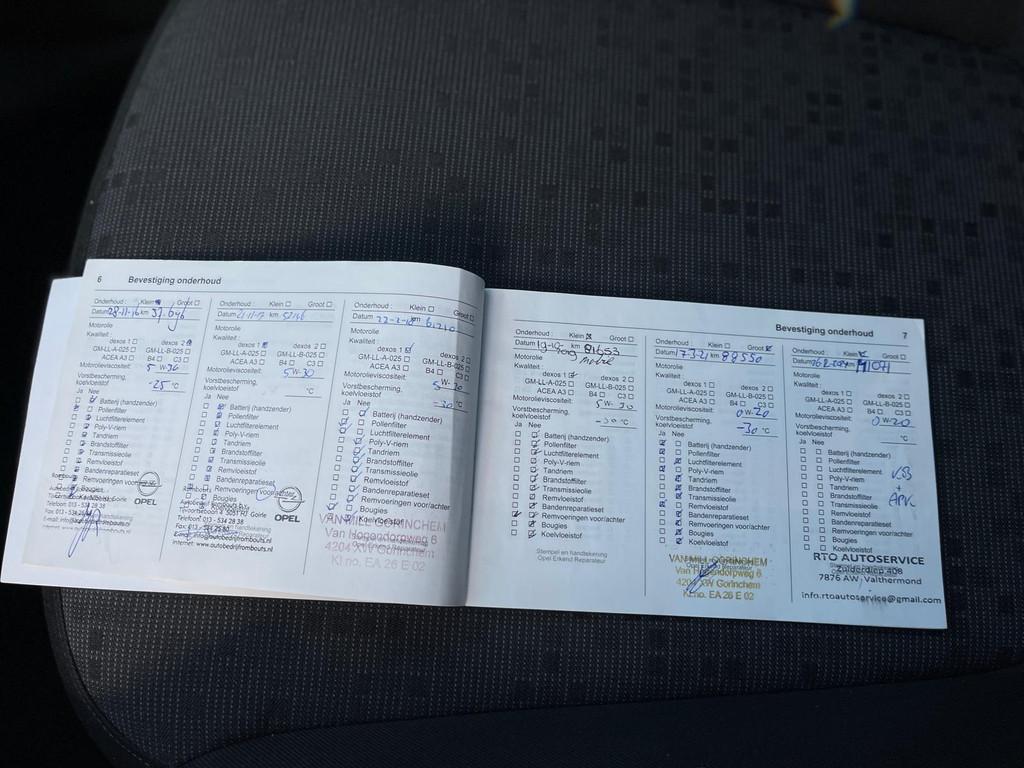 6 Bevestiging onderhoud
Onderhoud : Klein Groot
Datum 28-11-16 km 37.646
Motorolie
Kwaliteit :
dexos 1 dexos 2
GM-LL-A-025 GM-LL-B-025
ACEA A3 B4 C3
Motorolieviscositeit: 5 W-30
Vorstbescherming,
koelvloeistof -25 °C
Ja Nee
Batterij (handzender)
Pollenfilter
Luchtfilterelement
Poly-V-riem
Tandriem
Brandstoffilter
Transmissieolie
Remvloeistof
Bandenreparatieset
Remvoeringen voor/achter
Bougies
Koelvloeistof
Telefoon: 013 - 534 28 38
OPEL
Onderhoud : Klein Groot
Datum 21-11-17 km
Motorolie
Kwaliteit :
dexos 1 dexos 2
GM-LL-A-025 GM-LL-B-025
ACEA A3 B4 C3
Motorolieviscositeit: 5 W-30
Vorstbescherming,
koelvloeistof °C
Ja Nee
Batterij (handzender)
Pollenfilter
Luchtfilterelement
Poly-V-riem
Tandriem
Brandstoffilter
Transmissieolie
Remvloeistof
Bandenreparatieset
Remvoeringen voor/achter
Bougies
Telefoon: 013 - 534 28 38
internet: www.autobedrijfrombouts.nl
OPEL
Onderhoud : Klein Groot
Datum 22-2-18 km 61210
Motorolie
Kwaliteit :
dexos 1 dexos 2
GM-LL-A-025 GM-LL-B-025
ACEA A3 B4 C3
Motorolieviscositeit: 5 W-30
Vorstbescherming,
koelvloeistof -30 °C
Ja Nee
Batterij (handzender)
Pollenfilter
Luchtfilterelement
Poly-V-riem
Tandriem
Brandstoffilter
Transmissieolie
Remvloeistof
Bandenreparatieset
Remvoeringen voor/achter
Bougies
Koelvloeistof
VAN MILL GORINCHEM
Van Hogendorpweg 6
4204 XW Gorinchem
Kl.no. EA 26 E 02
Bevestiging onderhoud 7
Onderhoud : Klein Groot
Datum km 81653
Motorolie
Kwaliteit :
dexos 1 dexos 2
GM-LL-A-025 GM-LL-B-025
ACEA A3 B4 C3
Motorolieviscositeit: 5 W-30
Vorstbescherming,
koelvloeistof -30 °C
Ja Nee
Batterij (handzender)
Pollenfilter
Luchtfilterelement
Poly-V-riem
Tandriem
Brandstoffilter
Transmissieolie
Remvloeistof
Bandenreparatieset
Remvoeringen voor/achter
Bougies
Koelvloeistof
Stempel en handtekening
Opel Erkend Reparateur
Onderhoud : Klein Groot
Datum 17-3-21 km 88550
Motorolie
Kwaliteit :
dexos 1 dexos 2
GM-LL-A-025 GM-LL-B-025
ACEA A3 B4 C3
Motorolieviscositeit: 0 W-20
Vorstbescherming,
koelvloeistof -30 °C
Ja Nee
Batterij (handzender)
Pollenfilter
Luchtfilterelement
Poly-V-riem
Tandriem
Brandstoffilter
Transmissieolie
Remvloeistof
Bandenreparatieset
Remvoeringen voor/achter
Bougies
Koelvloeistof
VAN MILL GORINCHEM
Van Hogendorpweg 6
4204 XW Gorinchem
Kl.no. EA 26 E 02
Onderhoud : Klein Groot
Datum km
Motorolie
Kwaliteit :
dexos 1 dexos 2
GM-LL-A-025 GM-LL-B-025
ACEA A3 B4 C3
Motorolieviscositeit: 0 W-20
Vorstbescherming,
koelvloeistof °C
Ja Nee
Batterij (handzender)
Pollenfilter
Luchtfilterelement
Poly-V-riem
Tandriem
Brandstoffilter
Transmissieolie
Remvloeistof
Bandenreparatieset
Remvoeringen voor/achter
Bougies
Koelvloeistof
+
APK
RTO AUTOSERVICE
Zuiderdiep 408
7876 AW, Valthermond
info.rtoautoservice@gmail.com